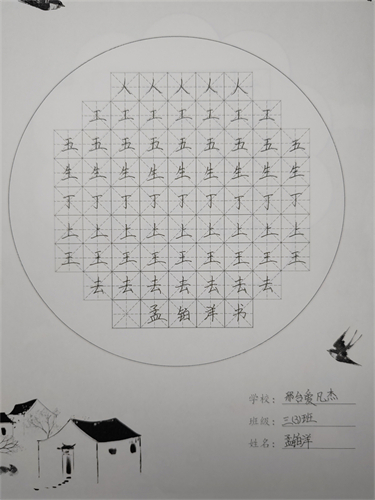 人人人人人
工工工工工工工
五五五五五五五五五
生生生生生生生生生
丁丁丁丁丁丁丁丁丁
上上上上上上上上上
王王王王王王王王王
去去去去去去去
孟铂洋书
学校：邢台爱凡杰
班级：三(3)班
姓名：孟铂洋